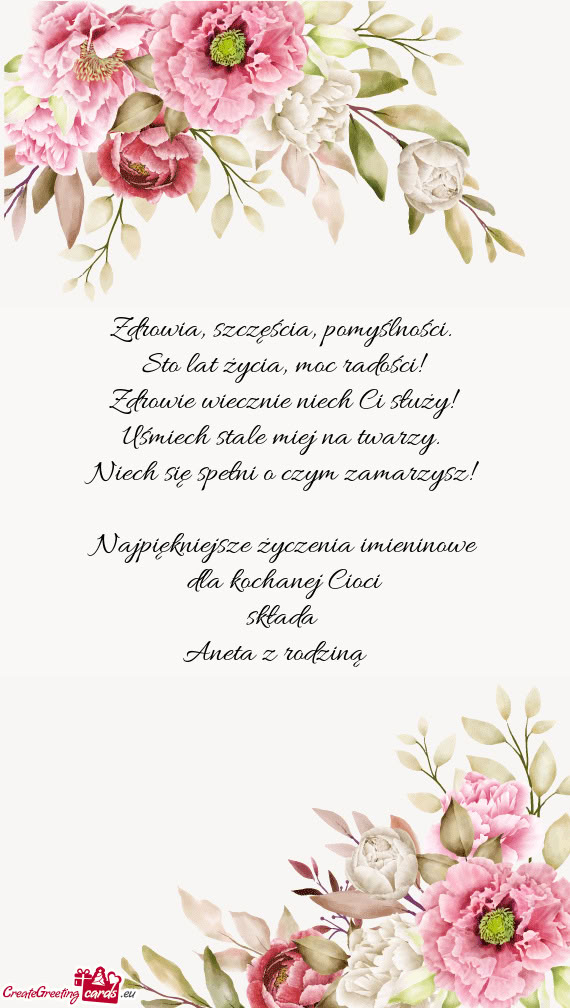 Zdrowia, szczęścia, pomyślności.
Sto lat życia, moc radości!
Zdrowie wiecznie niech Ci służy!
Uśmiech stale miej na twarzy.
Niech się spełni o czym zamarzysz!
Najpiękniejsze życzenia imieninowe
dla kochanej Cioci
składa
Aneta z rodziną
CreateGreeting cards .eu